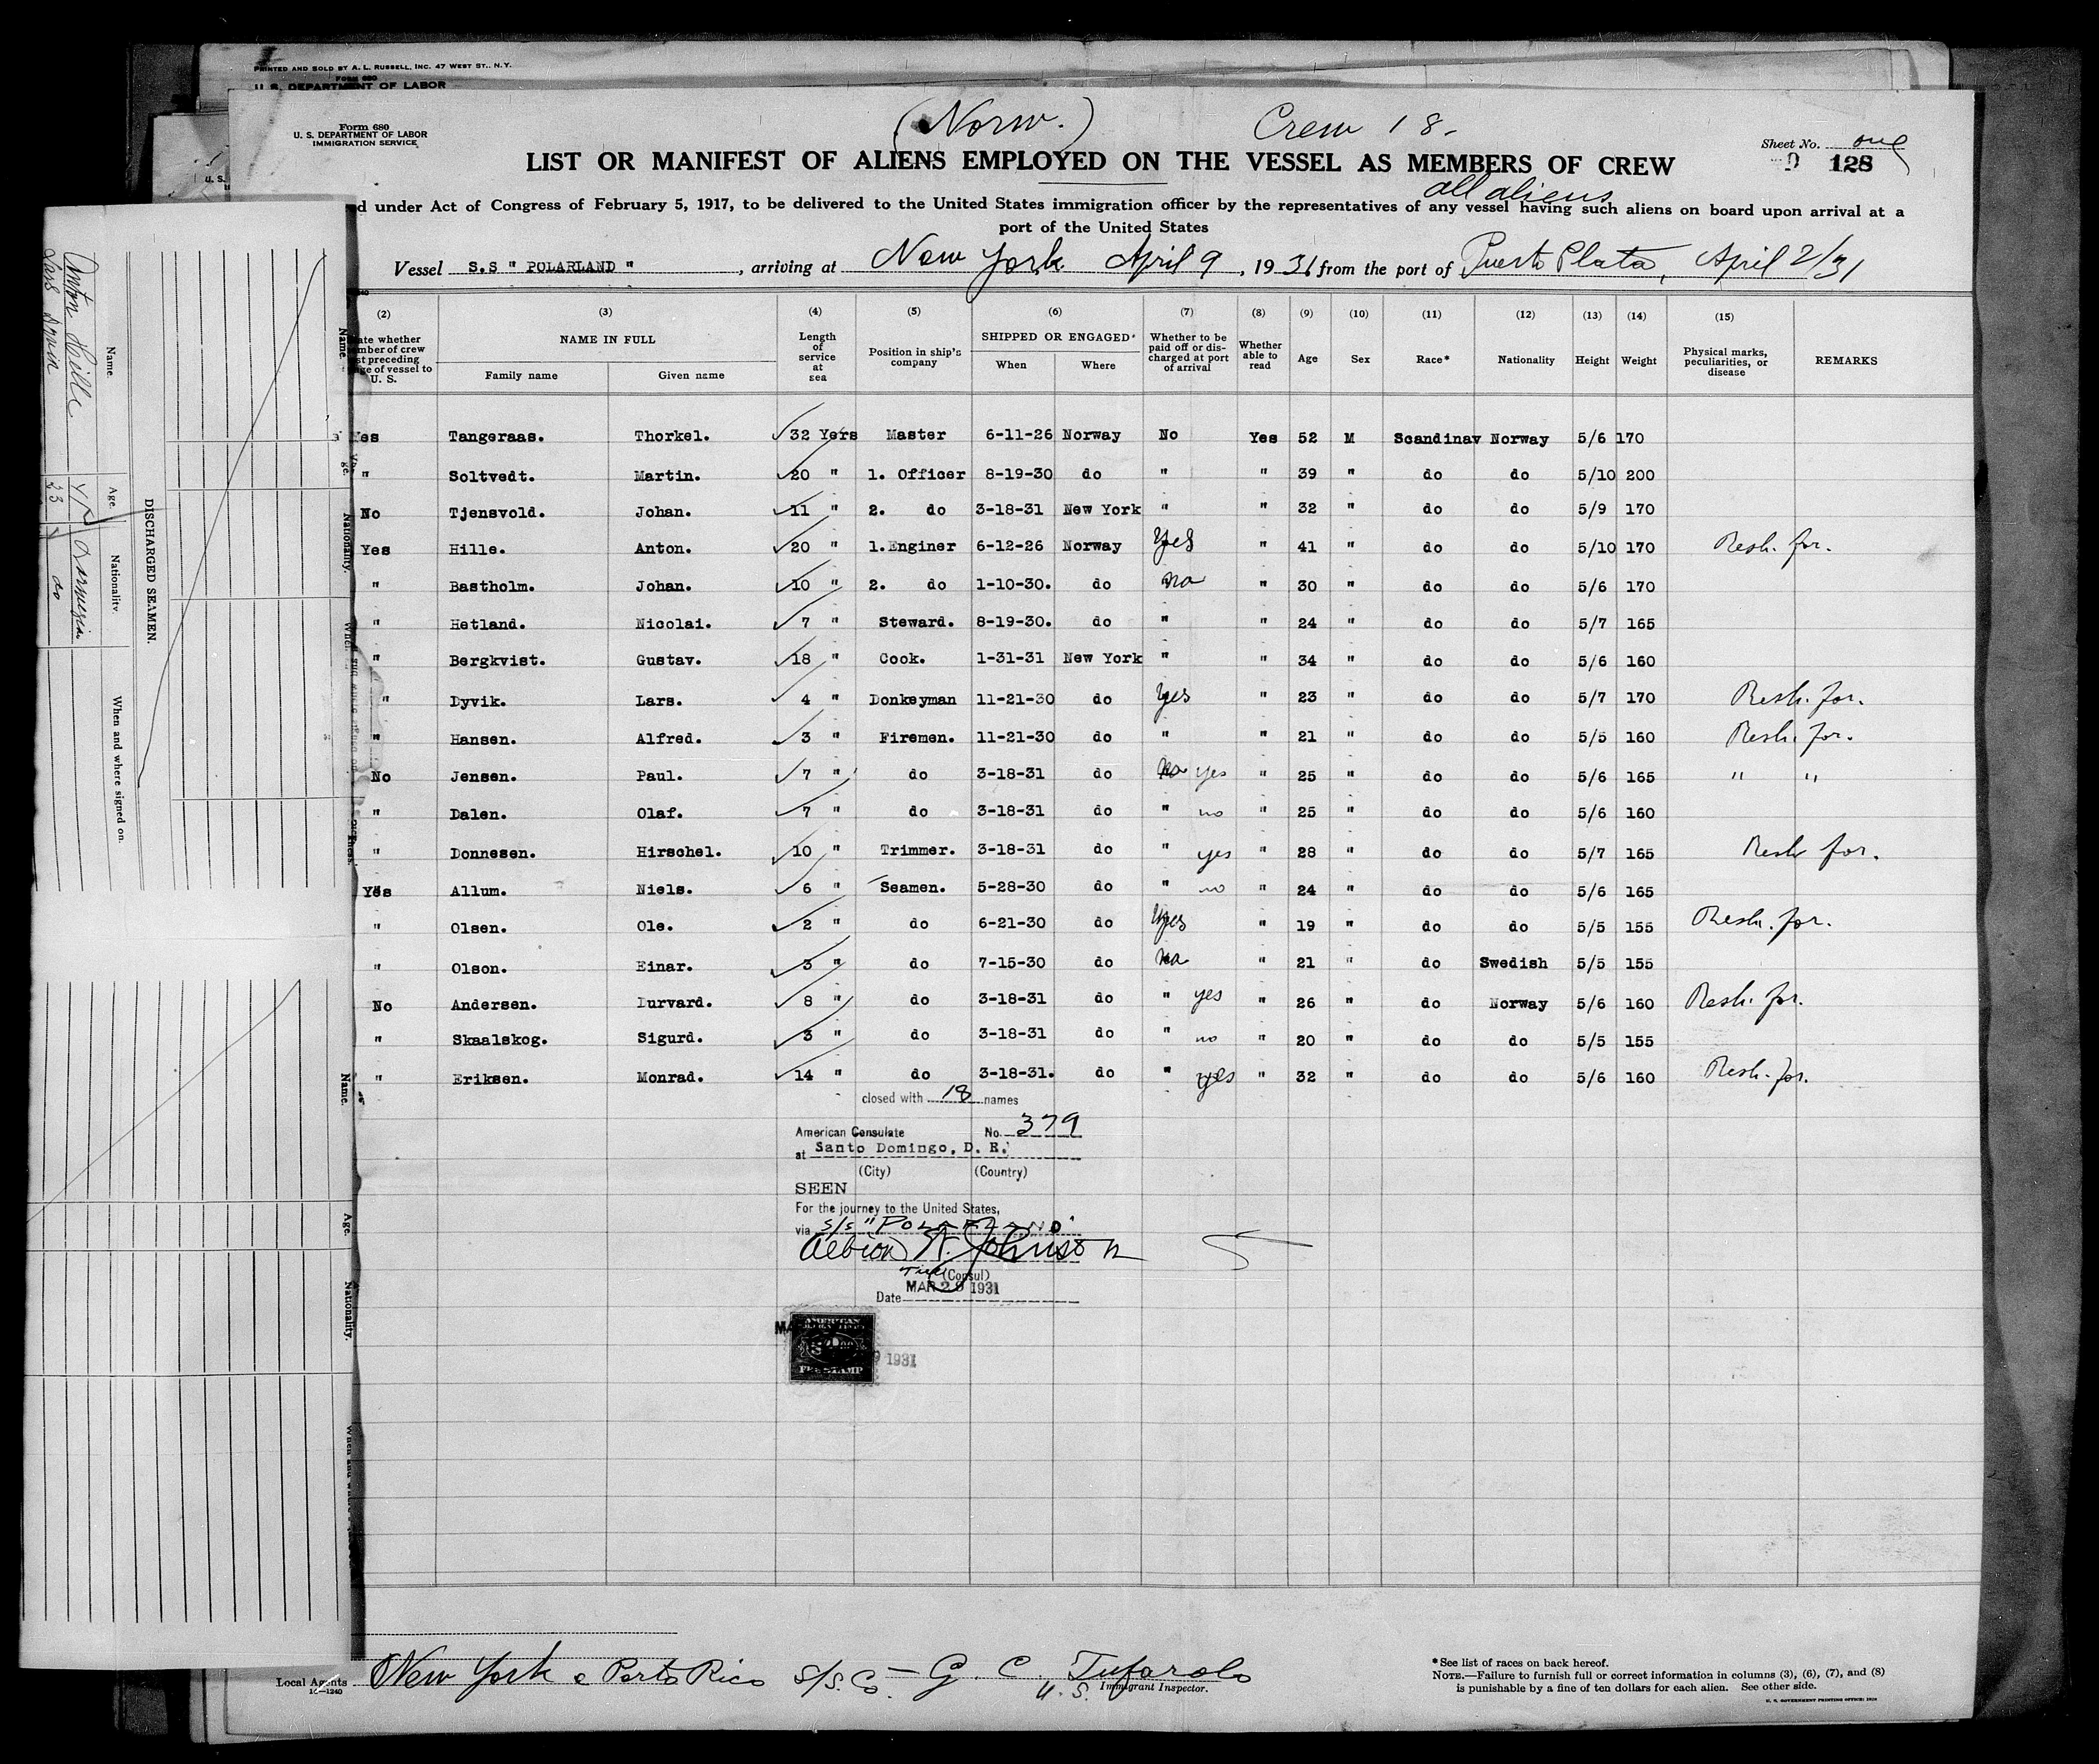 PRINTED AND SOLD BY A. L. RUSSELL, INC. 47 WEST ST., N.Y.
Form 680
U. S. DEPARTMENT OF LABOR
Form 680
U. S. DEPARTMENT OF LABOR
IMMIGRATION SERVICE
(Norw.) Crew 18-
Sheet No. one
128
LIST OR MANIFEST OF ALIENS EMPLOYED ON THE VESSEL AS MEMBERS OF CREW
all aliens
d under Act of Congress of February 5, 1917, to be delivered to the United States immigration officer by the representatives of any vessel having such aliens on board upon arrival at a
port of the United States
Vessel S.S " POLARLAND " , arriving at New York April 9 , 1931 from the port of Puerto Plata, April 2/31
(2) (3) (4) (5) (6) (7) (8) (9) (10) (11) (12) (13) (14) (15)
ate whether mber of crew st preceding ge of vessel to U. S. NAME IN FULL Family name Given name Length of service at sea Position in ship's company SHIPPED OR ENGAGED* When Where Whether to be paid off or discharged at port of arrival Whether able to read Age Sex Race* Nationality Height Weight Physical marks, peculiarities, or disease REMARKS
Yes Tangeraas. Thorkel. 32 Yers Master 6-11-26 Norway No Yes 52 M Scandinav Norway 5/6 170
" Soltvedt. Martin. 20 " 1. Officer 8-19-30 do " " 39 " do do 5/10 200
No Tjensvold. Johan. 11 " 2. do 3-18-31 New York " " 32 " do do 5/9 170
Yes Hille. Anton. 20 " 1.Enginer 6-12-26 Norway Yes " 41 " do do 5/10 170 Resh. for.
" Bastholm. Johan. 10 " 2. do 1-10-30. do no " 30 " do do 5/6 170
" Hetland. Nicolai. 7 " Steward. 8-19-30. do " " 24 " do do 5/7 165
" Bergkvist. Gustav. 18 " Cook. 1-31-31 New York " " 34 " do do 5/6 160
" Dyvik. Lars. 4 " Donkeyman 11-21-30 do yes " 23 " do do 5/7 170 Resh. for.
" Hansen. Alfred. 3 " Firemen. 11-21-30 do " " 21 " do do 5/5 160 Resh. for.
No Jensen. Paul. 7 " do 3-18-31 do no yes " 25 " do do 5/6 165 " "
" Dalen. Olaf. 7 " do 3-18-31 do " no " 25 " do do 5/6 160
" Donnesen. Hirschel. 10 " Trimmer. 3-18-31 do " yes " 28 " do do 5/7 165 Resh for.
Yes Allum. Niels. 6 " Seamen. 5-28-30 do " no " 24 " do do 5/6 165
" Olsen. Ole. 2 " do 6-21-30 do yes " 19 " do do 5/5 155 Resh. for.
" Olson. Einar. 3 " do 7-15-30 do no " 21 " do Swedish 5/5 155
No Andersen. Durvard. 8 " do 3-18-31 do " yes " 26 " do Norway 5/6 160 Resh. for.
" Skaalskog. Sigurd. 3 " do 3-18-31 do " no " 20 " do do 5/5 155
" Eriksen. Monrad. 14 " do 3-18-31. do " yes " 32 " do do 5/6 160 Resh. for.
closed with 18 names
American Consulate No. 379
at Santo Domingo, D. R.
(City) (Country)
SEEN
For the journey to the United States,
via S/s "POLARLAND"
Albion W. Johnson
(Consul)
Date MAR 29 1931
AMERICAN
FEE STAMP
1931
Local Agents New York & Porto Rico S/S. Co. - G. C. Tufarolo
U. S. Immigrant Inspector.
16-1240
*See list of races on back hereof.
NOTE.—Failure to furnish full or correct information in columns (3), (6), (7), and (8)
is punishable by a fine of ten dollars for each alien. See other side.
U. S. GOVERNMENT PRINTING OFFICE: 1929
DISCHARGED SEAMEN.
Name. Age. Nationality. When and where signed on.
Anton Hille 41
23 do
Name.
Nationality.
Name.
Age.
Nationality.